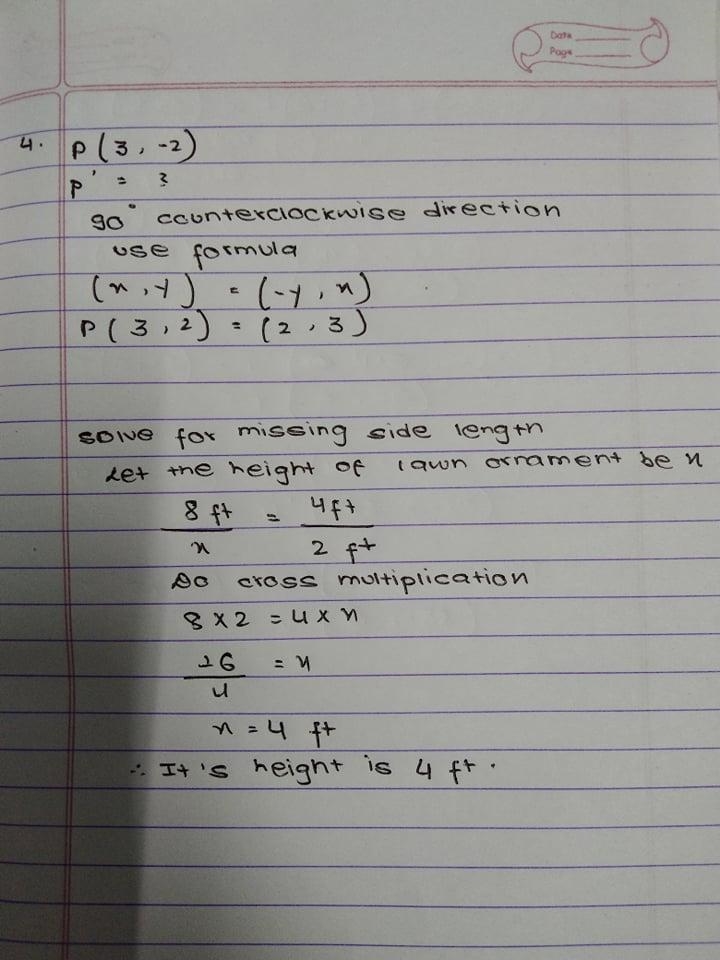 Date
Page
4. P(3, -2)
P' = ?
90° counterclockwise direction
use formula
(x, y) = (-y, x)
P(3, 2) = (2, 3)
solve for missing side length
Let the height of lawn ornament be x
8 ft / x = 4 ft / 2 ft
Do cross multiplication
8 × 2 = 4 × x
16 / 4 = x
x = 4 ft
∴ It's height is 4 ft.